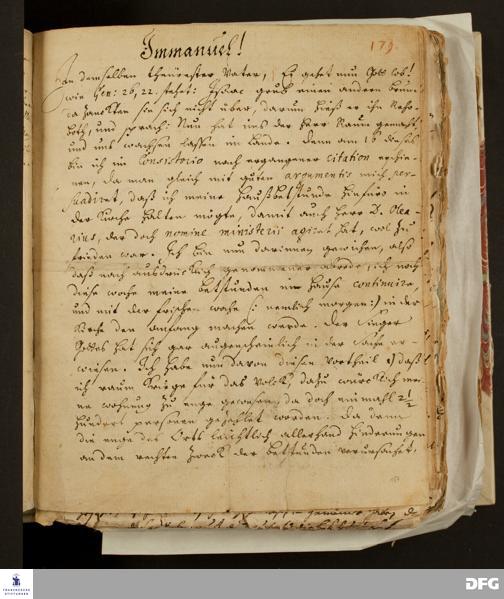 Immanuel!
179.
In demselben theürester Vater, Es gehet nun Gott lob!
wie Gen: 26, 22. stehet: Isaac grub einen andern brunn
da zanckten sie sich nicht über, darum hieß er ihn Reho-
both, und sprach: Nun hat uns der Herr Raum gemacht
und uns wachsen laßen im Lande. Denn am 16 dieses
bin ich im Consistorio nach ergangener citation erschie-
nen, da man gleich mit guten argumentis mich per-
suadiret, daß ich meine Haußbetstunde hinfüro in
der Kirche halten mögte, damit auch Herr D. Olea-
rius, der doch nomine ministerii agiret hat, wol zu
frieden war. Ich bin nun darinnen gewichen, also
daß nach ausdrücklich genommener abrede, ich noch
diese woche meine betstunden im Hause continuire,
und mit der frischen woche (: nemlich morgen:) in der
Kirche den anfang machen werde. Der Finger
Gottes hat sich gar augenscheinlich in der Sache er-
wiesen. Ich habe nun davon diesen Vortheil 1) daß
ich raum kriege für das Volck, dazu würcklich mei-
ne wohnung zu enge gewesen, da doch einmahl 2½
hundert personen gezehlet worden. Da denn
die enge des Orts leichtlich allerhand hinderungen
an dem rechten zweck der betstunden verursachet.
FRANCKESCHE
STIFTUNGEN
DFG